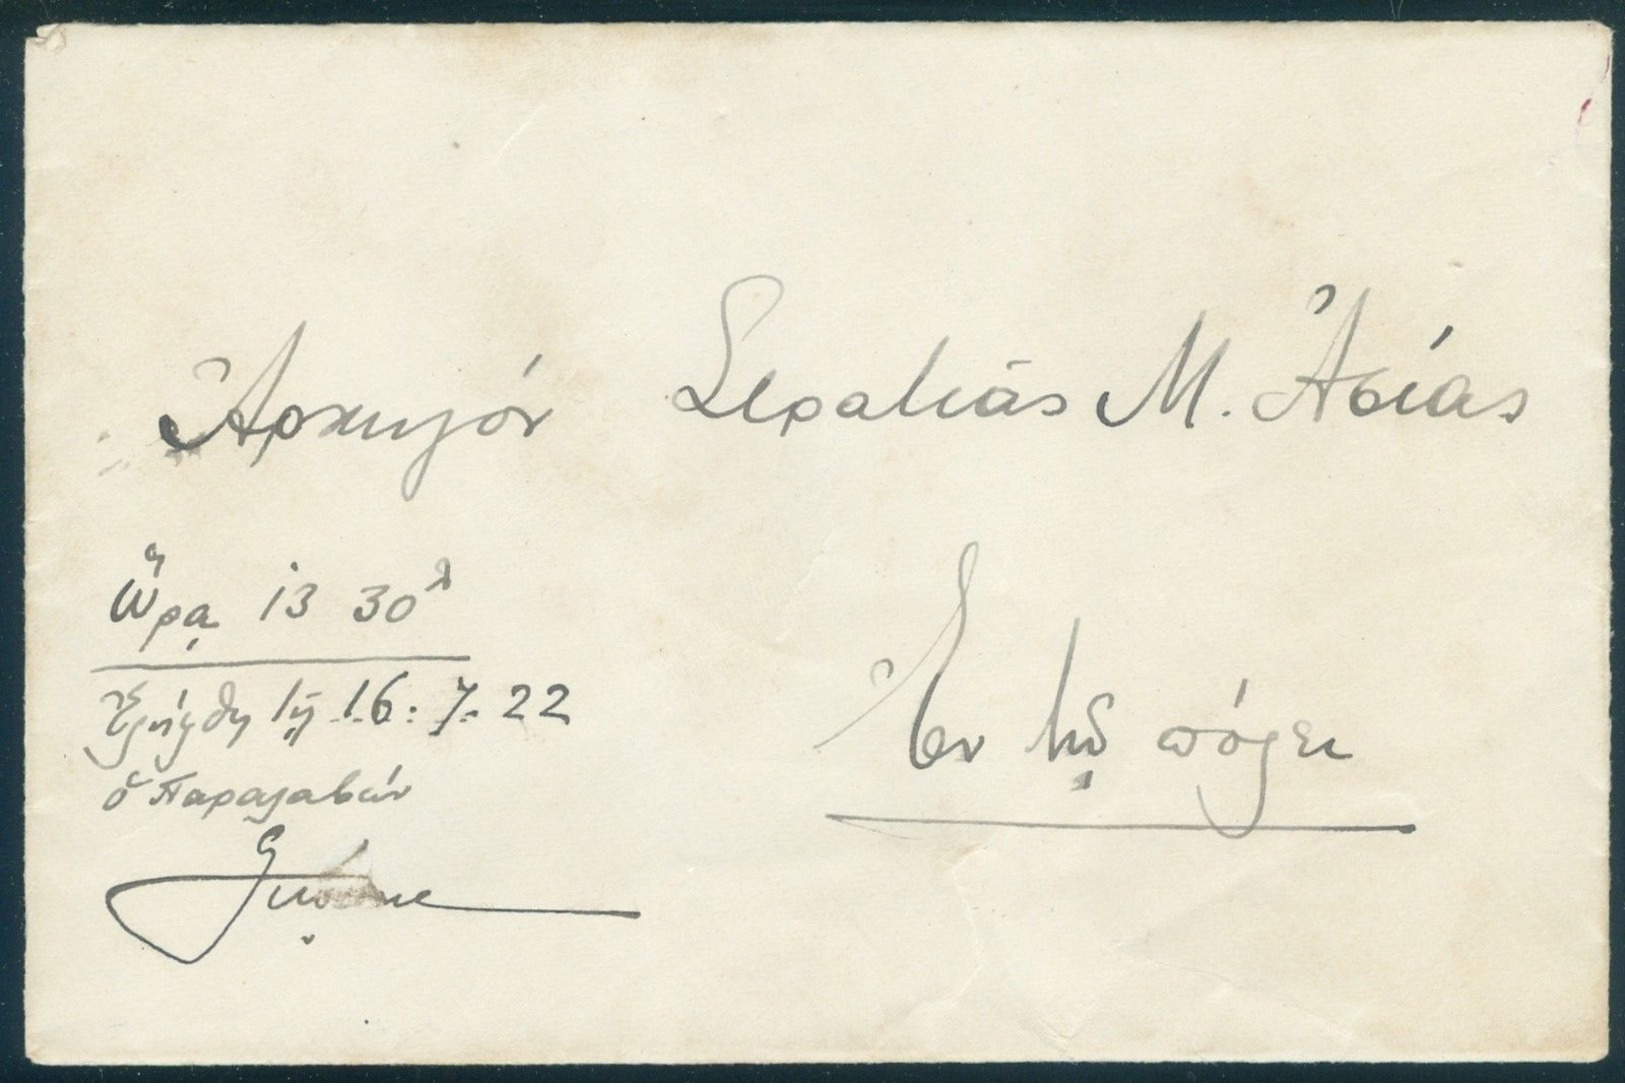 Ἀρχηγόν Στρατιᾶς Μ. Ἀσίας
Ὥρᾳ 13 30λ
Ἐλήφθη τῇ 16. 7. 22
ὁ Παραλαβών
Ἐν τῇ πόλει